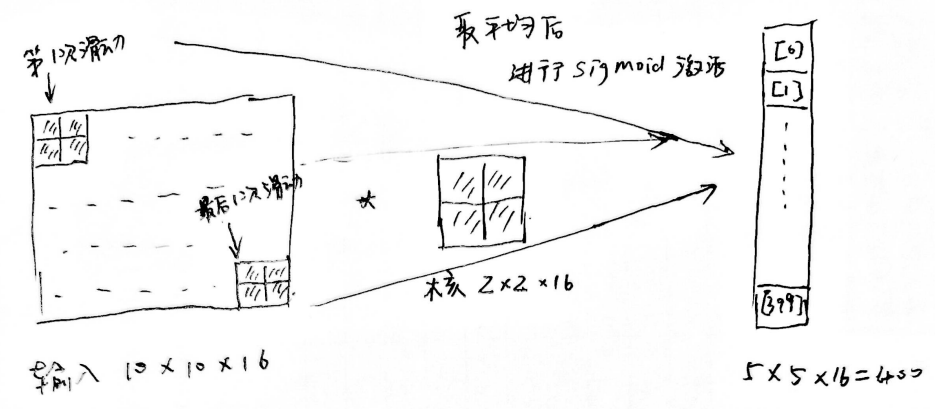 取平均后
进行sigmoid激活
第1次滑动
最后1次滑动
*
核 2×2×16
输入 10×10×16
[0]
[1]
[399]
5×5×16=400